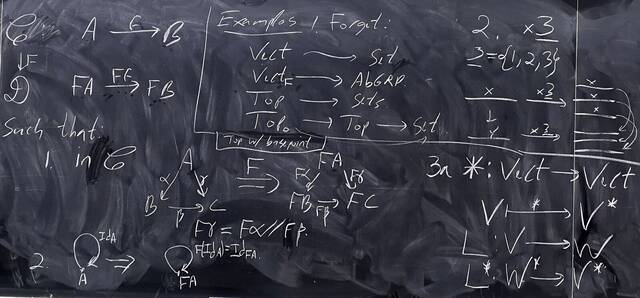 𝒞 A →f B
↓F
𝒟 FA →Ff FB
Such that:
1. in 𝒞
A
α γ
B →β C
F ⟹
FA
Fα Fγ
FB →Fβ FC
Fγ = Fα // Fβ
2. Id_A A ⟹ F(Id_A) = Id_FA FA
Examples 1. Forget:
Vect → Set
Vect_F → AbGRP.
Top → Sets
Top₀ → Top → Set
Top w/ basepoint
2. ×3
3 = {1, 2, 3}
X ×3 → X
X
X
↓
Y ×3 →
3a *: Vect → Vect
V ↦* V*
L: V → W
L*: W* → V*